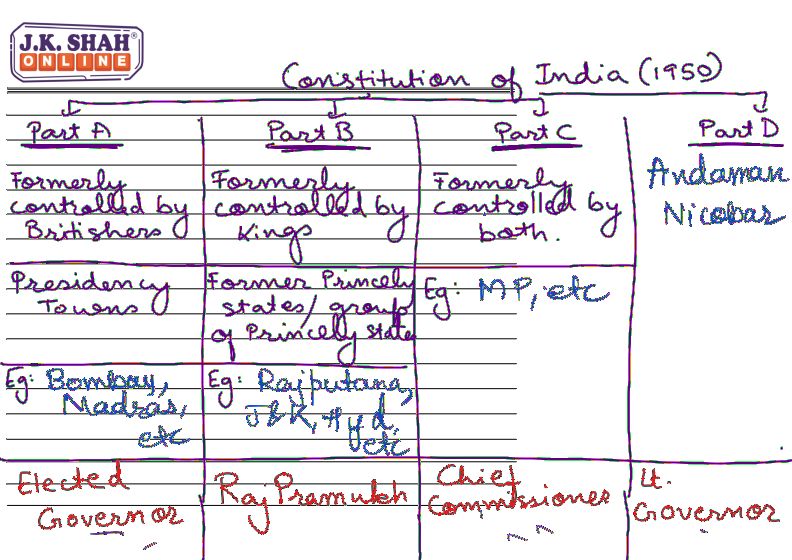 J.K. SHAH®
ONLINE
Constitution of India (1950)
Part A
Part B
Part C
Part D
Formerly
controlled by
Britishers
Formerly
controlled by
Kings
Formerly
controlled by
both.
Andaman
Nicobar
Presidency
Towns
Former Princely
states/group
of Princely state
Eg: MP, etc
Eg: Bombay,
Madras,
etc
Eg: Rajputana,
J&K, Hyd,
etc
Elected
Governor
Raj Pramukh
Chief
Commissioner
Lt.
Governor